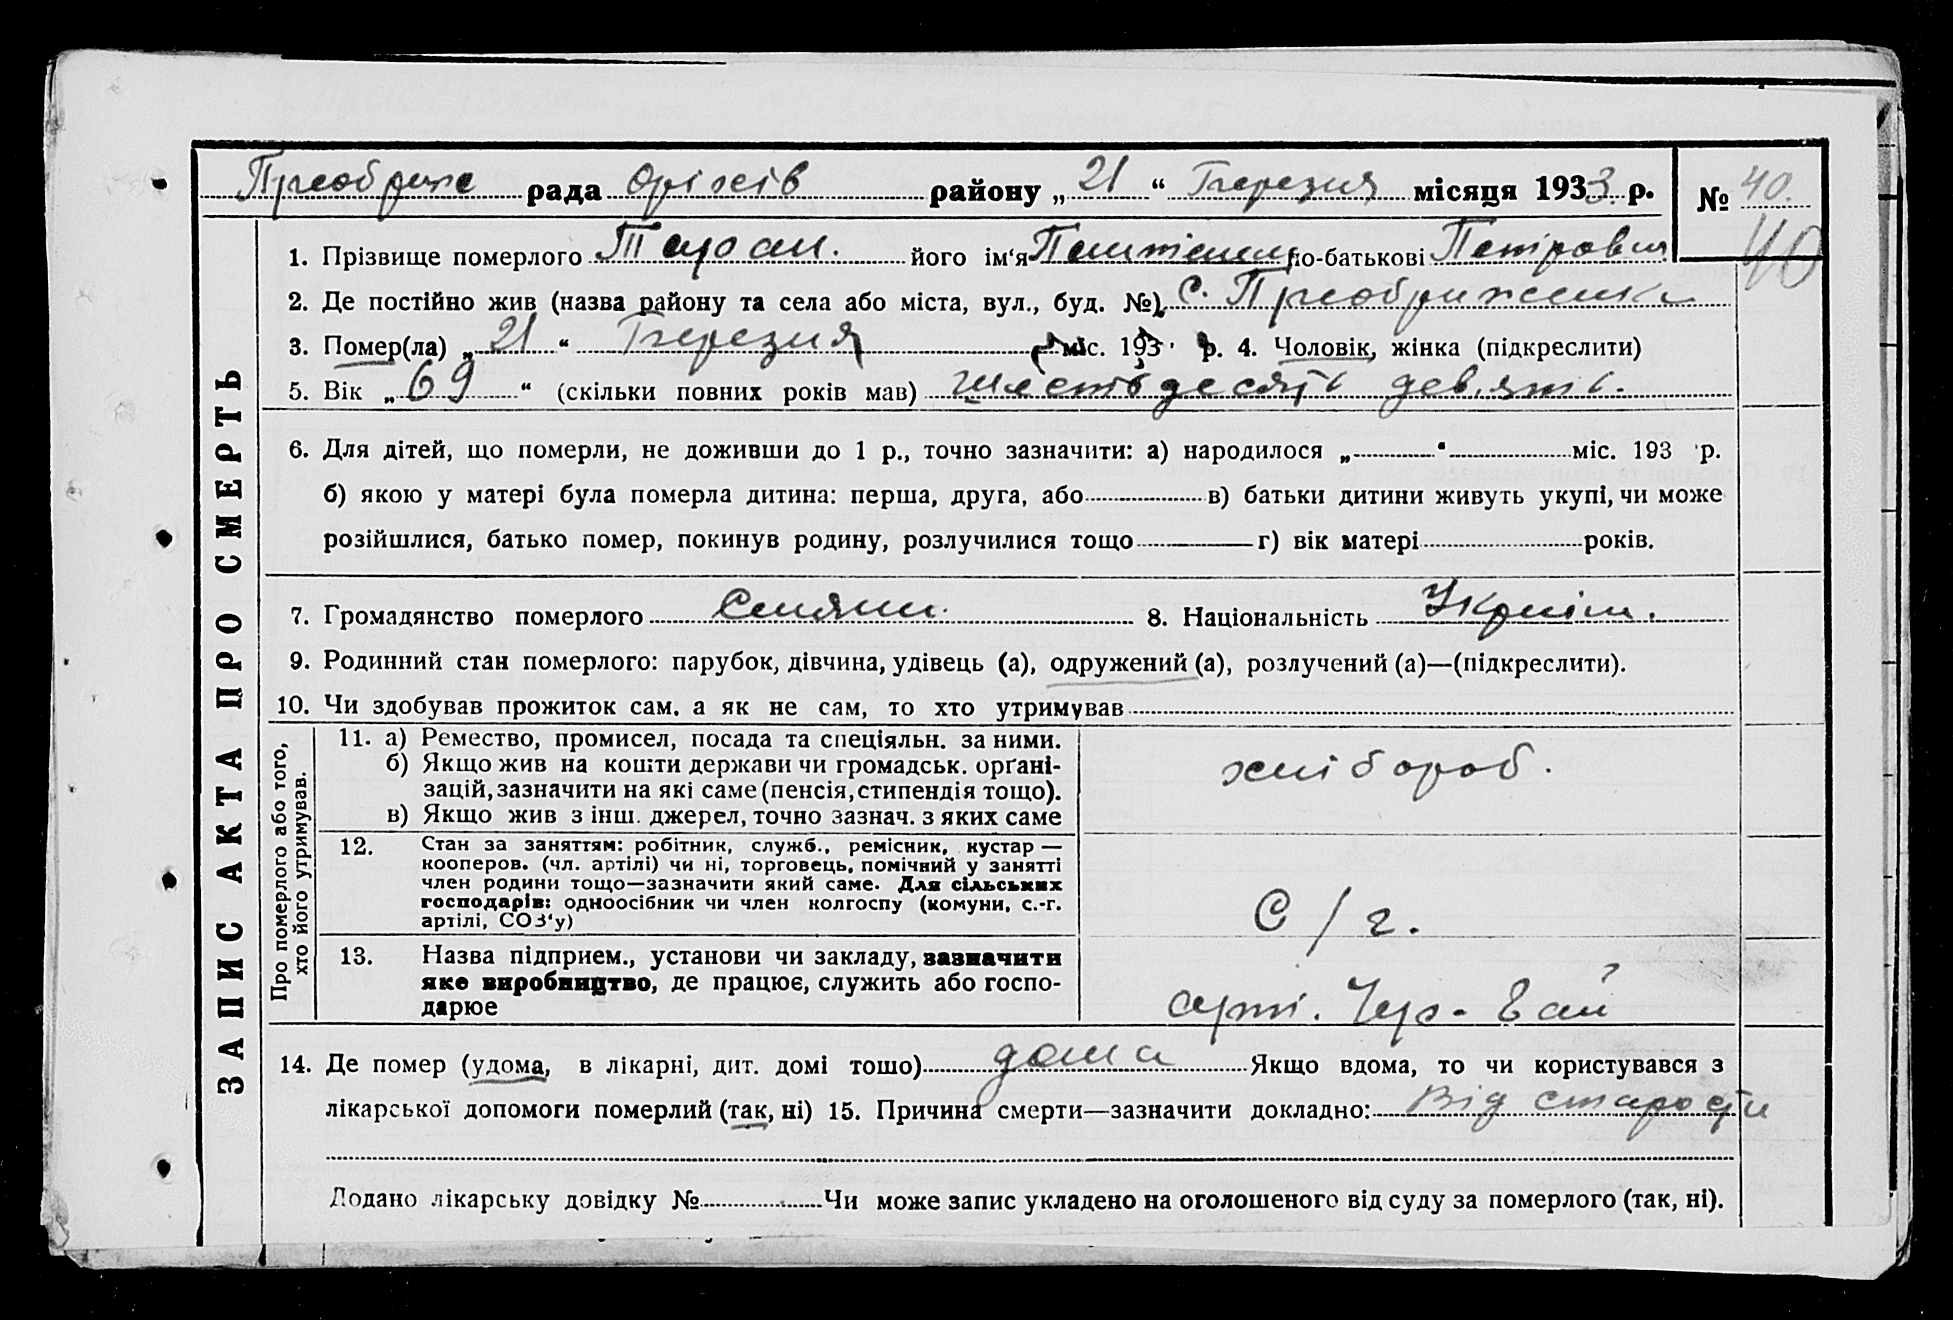 Преображе рада Оріхів району „ 21 “ Березня місяця 1933 р. № 40.
40
1. Прізвище померлого Таран. його ім‘я по-батькові Петрович
2. Де постійно жив (назва району та села або міста, вул., буд. №) с. Преображенка
3. Помер(ла) „ 21 “ Березня міс. 1933 р. 4. Чоловік, жінка (підкреслити)
5. Вік „ 69 “ (скільки повних років мав) шістьдесять девять.
6. Для дітей, що померли, не доживши до 1 р., точно зазначити: а) народилося „ “ міс. 193 р.
б) якою у матері була померла дитина: перша, друга, або в) батьки дитини живуть укупі, чи може
розійшлися, батько помер, покинув родину, розлучилися тощо г) вік матері років.
7. Громадянство померлого 8. Національність Україн.
9. Родинний стан померлого: парубок, дівчина, удівець (а), одружений (а), розлучений (а)—(підкреслити).
10. Чи здобував прожиток сам, а як не сам, то хто утримував
ЗАПИС АКТА ПРО СМЕРТЬ
Про померлого або того,
хто його утримував.
11. а) Ремество, промисел, посада та спеціяльн. за ними.
б) Якщо жив на кошти держави чи громадськ. орґані-
зацій, зазначити на які саме (пенсія, стипендія тощо).
в) Якщо жив з інш. джерел, точно зазнач. з яких саме
хлібороб.
12. Стан за заняттям: робітник, служб., ремісник, кустар —
кооперов. (чл. артілі) чи ні, торговець, помічний у занятті
член родини тощо—зазначити який саме. Для сільських
господарів: одноосібник чи член колгоспу (комуни, с.-г.
артілі, СОЗ‘у)
С/г.
13. Назва підприєм., установи чи закладу, зазначити
яке виробництво, де працює, служить або госпо-
дарює
арті. Чер.
14. Де помер (удома, в лікарні, дит. домі тощо) дома Якщо вдома, то чи користувався з
лікарської допомоги померлий (так, ні) 15. Причина смерти—зазначити докладно: Від старости
Додано лікарську довідку № Чи може запис укладено на оголошеного від суду за померлого (так, ні).